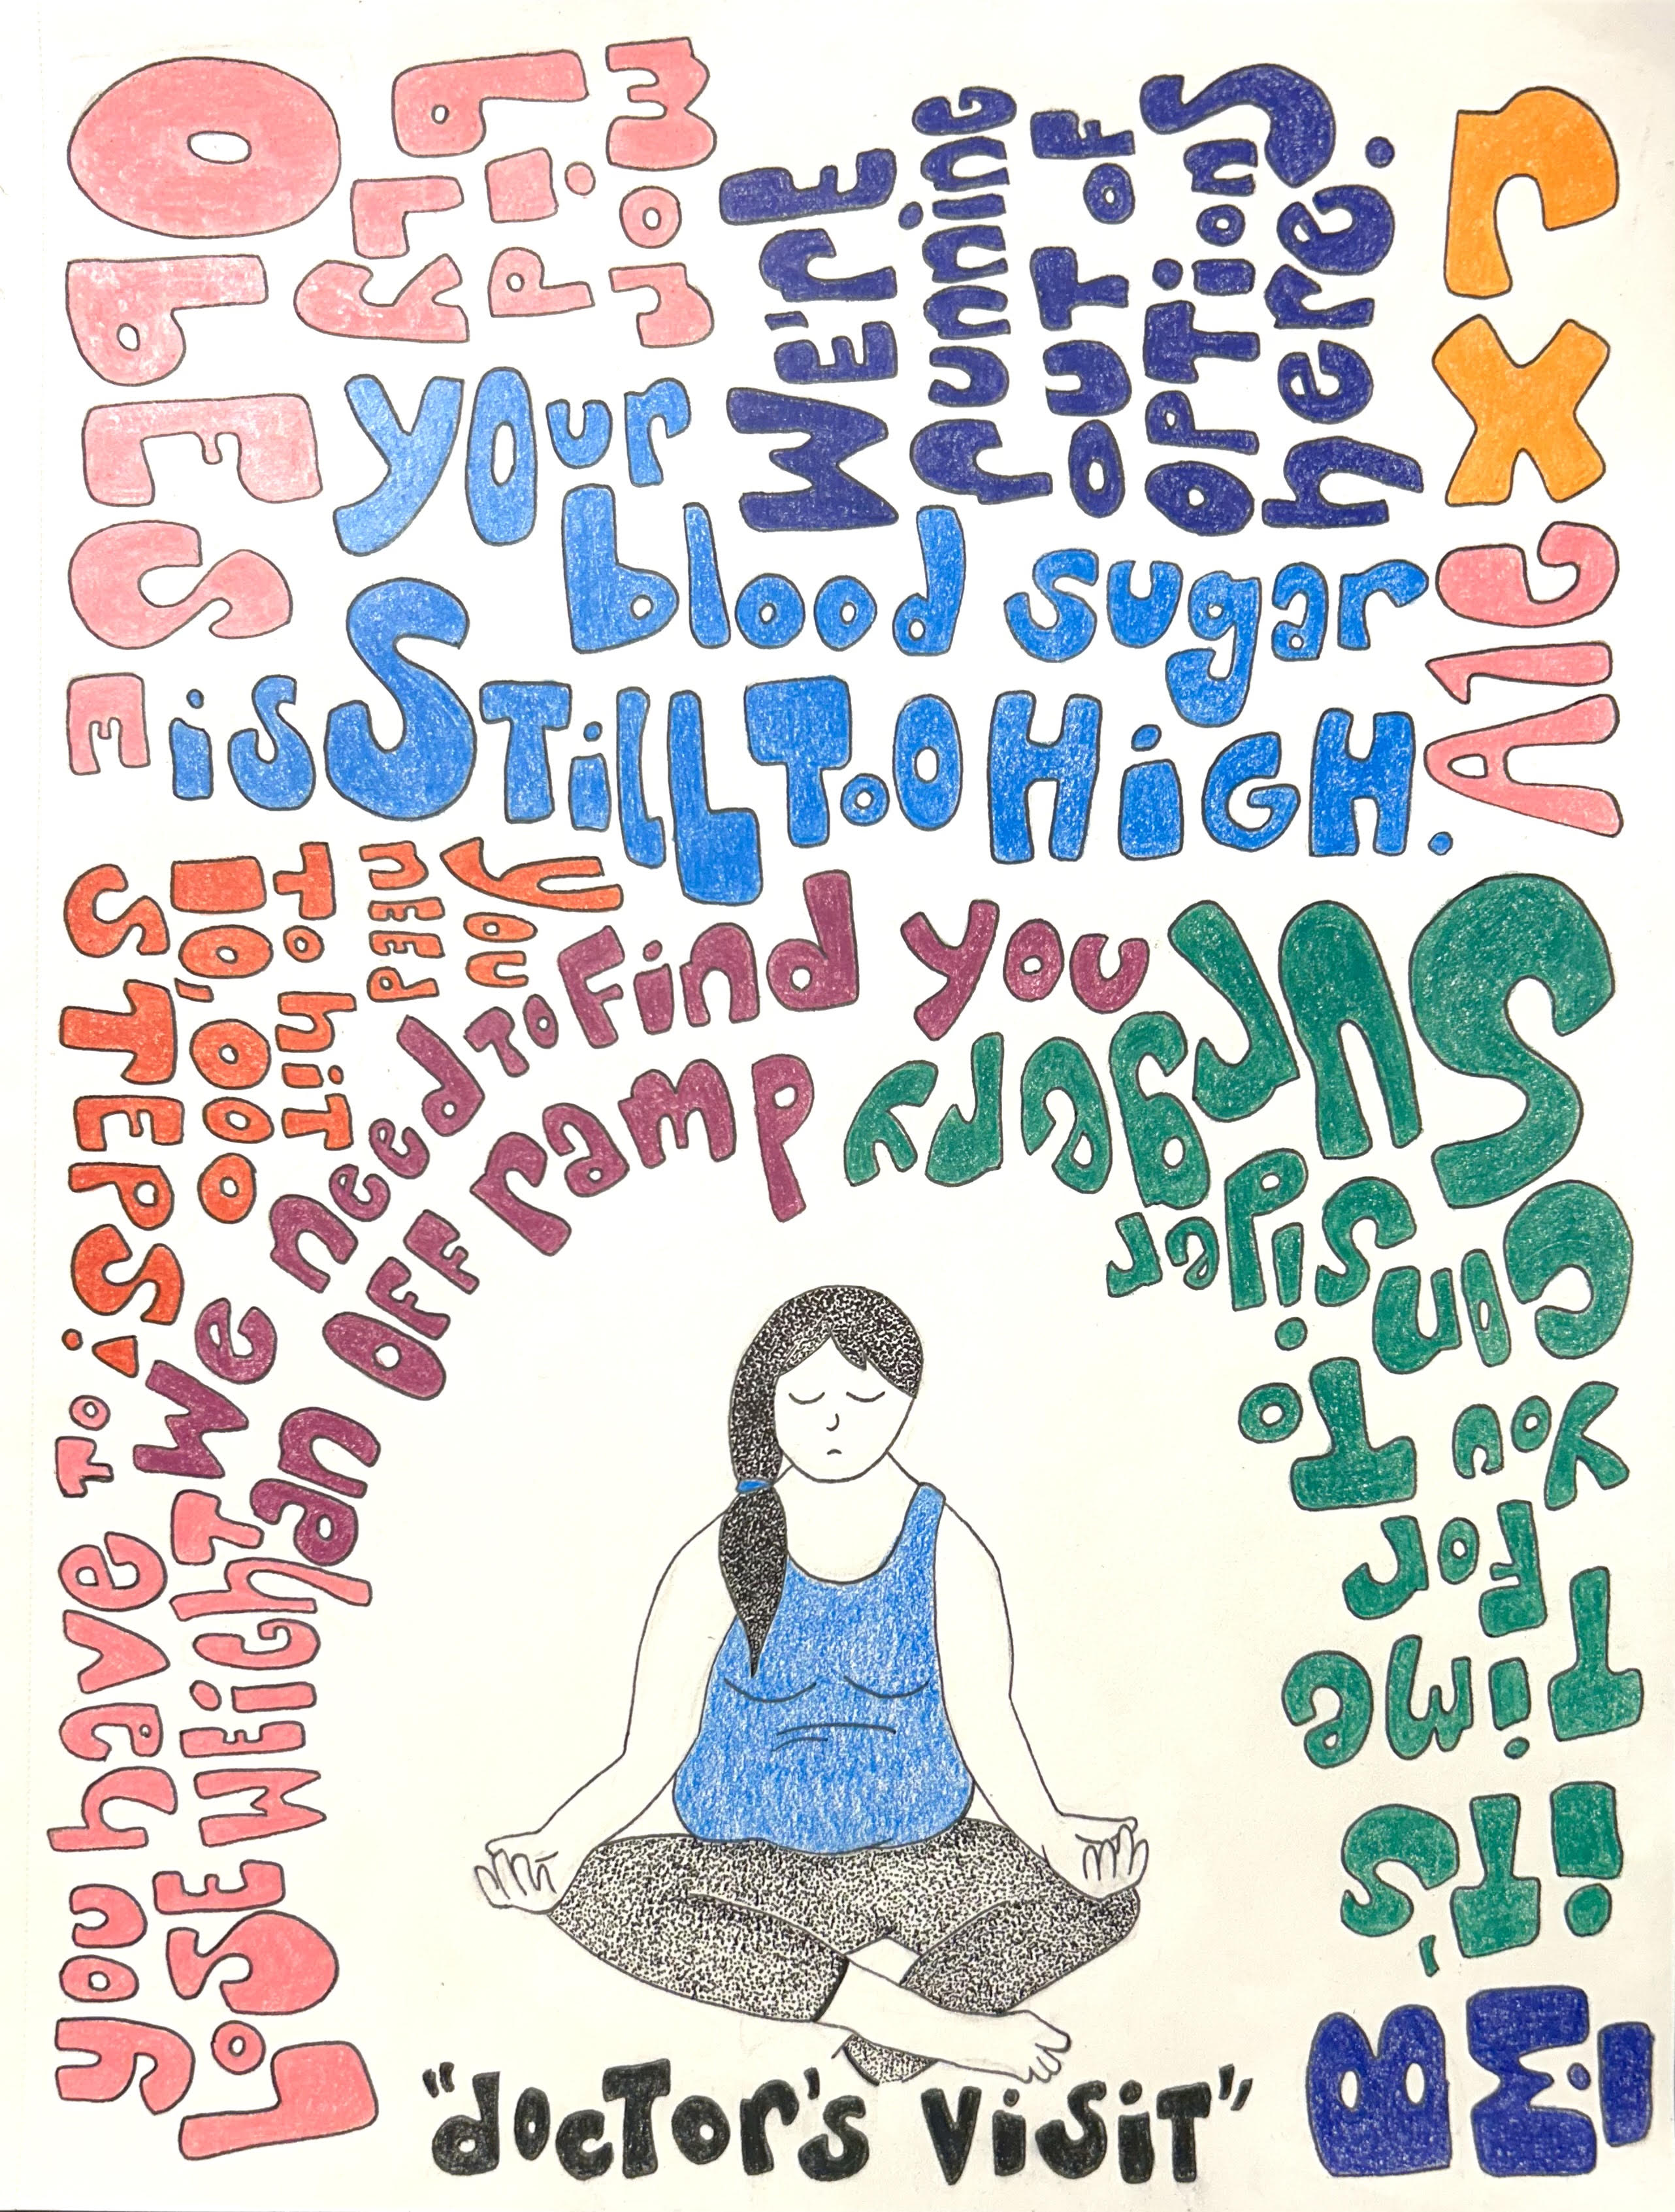 mor
biD
Ly
ObESE
WE'rE
running
OUT OF
OPTiONS
here.
rx
A1C
your
blood sugar
is STiLL Too HiGH.
you
nEED
To hiT
10,000
STEPS!
We need To Find you
an OFF ramp
you have To
LoSE WEighT
iT'S
Time
For
you
To
Consider
Surgery
BMI
"docTor's visiT"